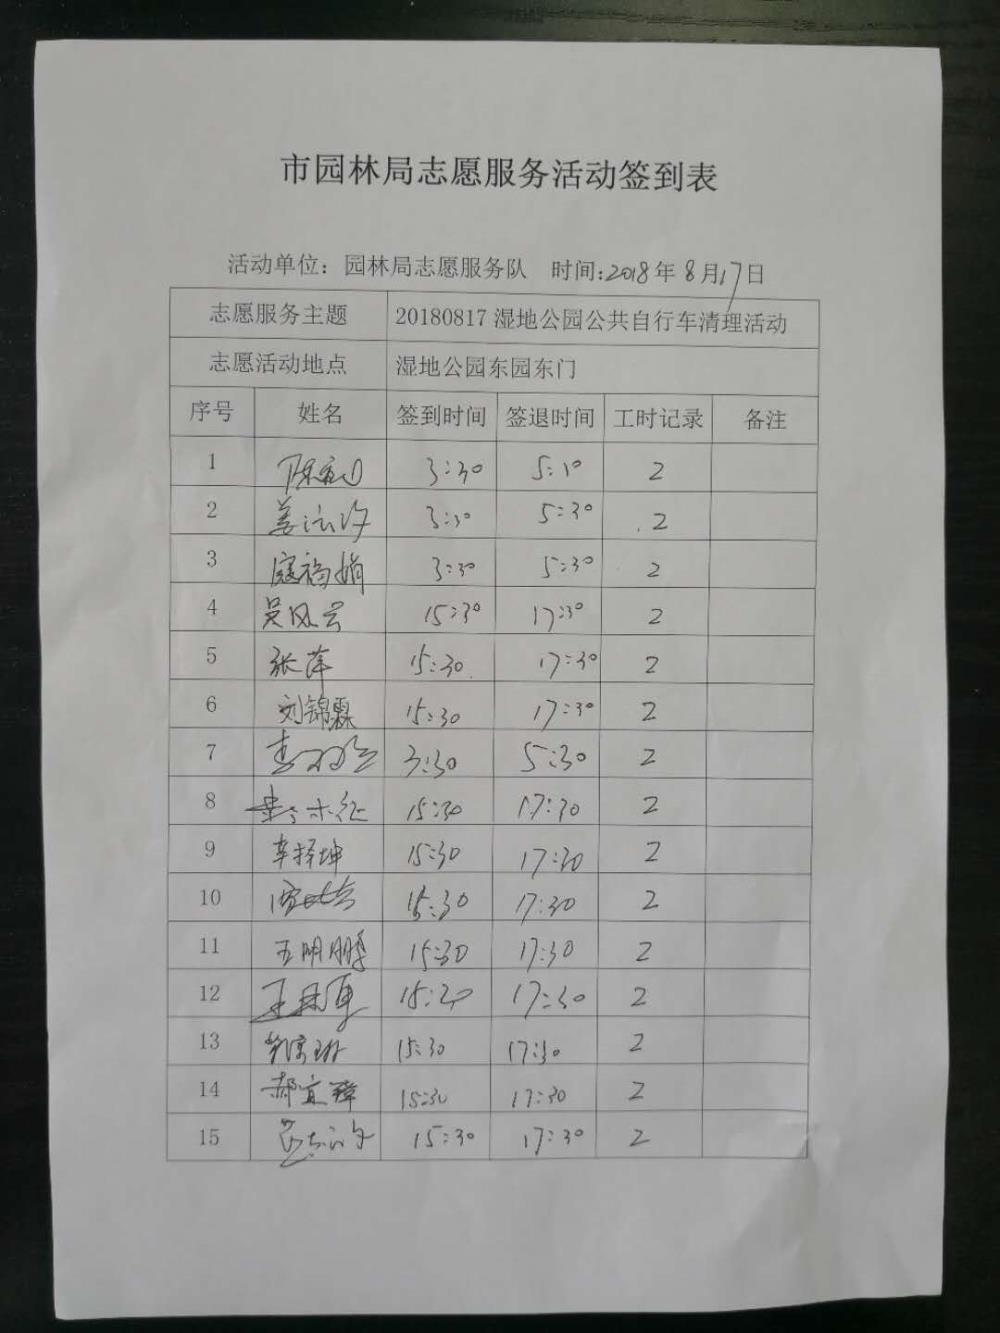 市园林局志愿服务活动签到表
活动单位：园林局志愿服务队 时间:2018年8月17日
志愿服务主题 20180817湿地公园公共自行车清理活动
志愿活动地点 湿地公园东园东门
序号 姓名 签到时间 签退时间 工时记录 备注
1 3:30 5:10 2
2 3:30 5:30 2
3 寇福娟 3:30 5:30 2
4 吴风云 15:30 17:30 2
5 张萍 15:30 17:30 2
6 刘锦霖 15:30 17:30 2
7 3:30 5:30 2
8 15:30 17:30 2
9 辛择坤 15:30 17:30 2
10 15:30 17:30 2
11 王明鹏 15:30 17:30 2
12 15:30 17:30 2
13 15:30 17:30 2
14 郝宜璋 15:30 17:30 2
15 15:30 17:30 2